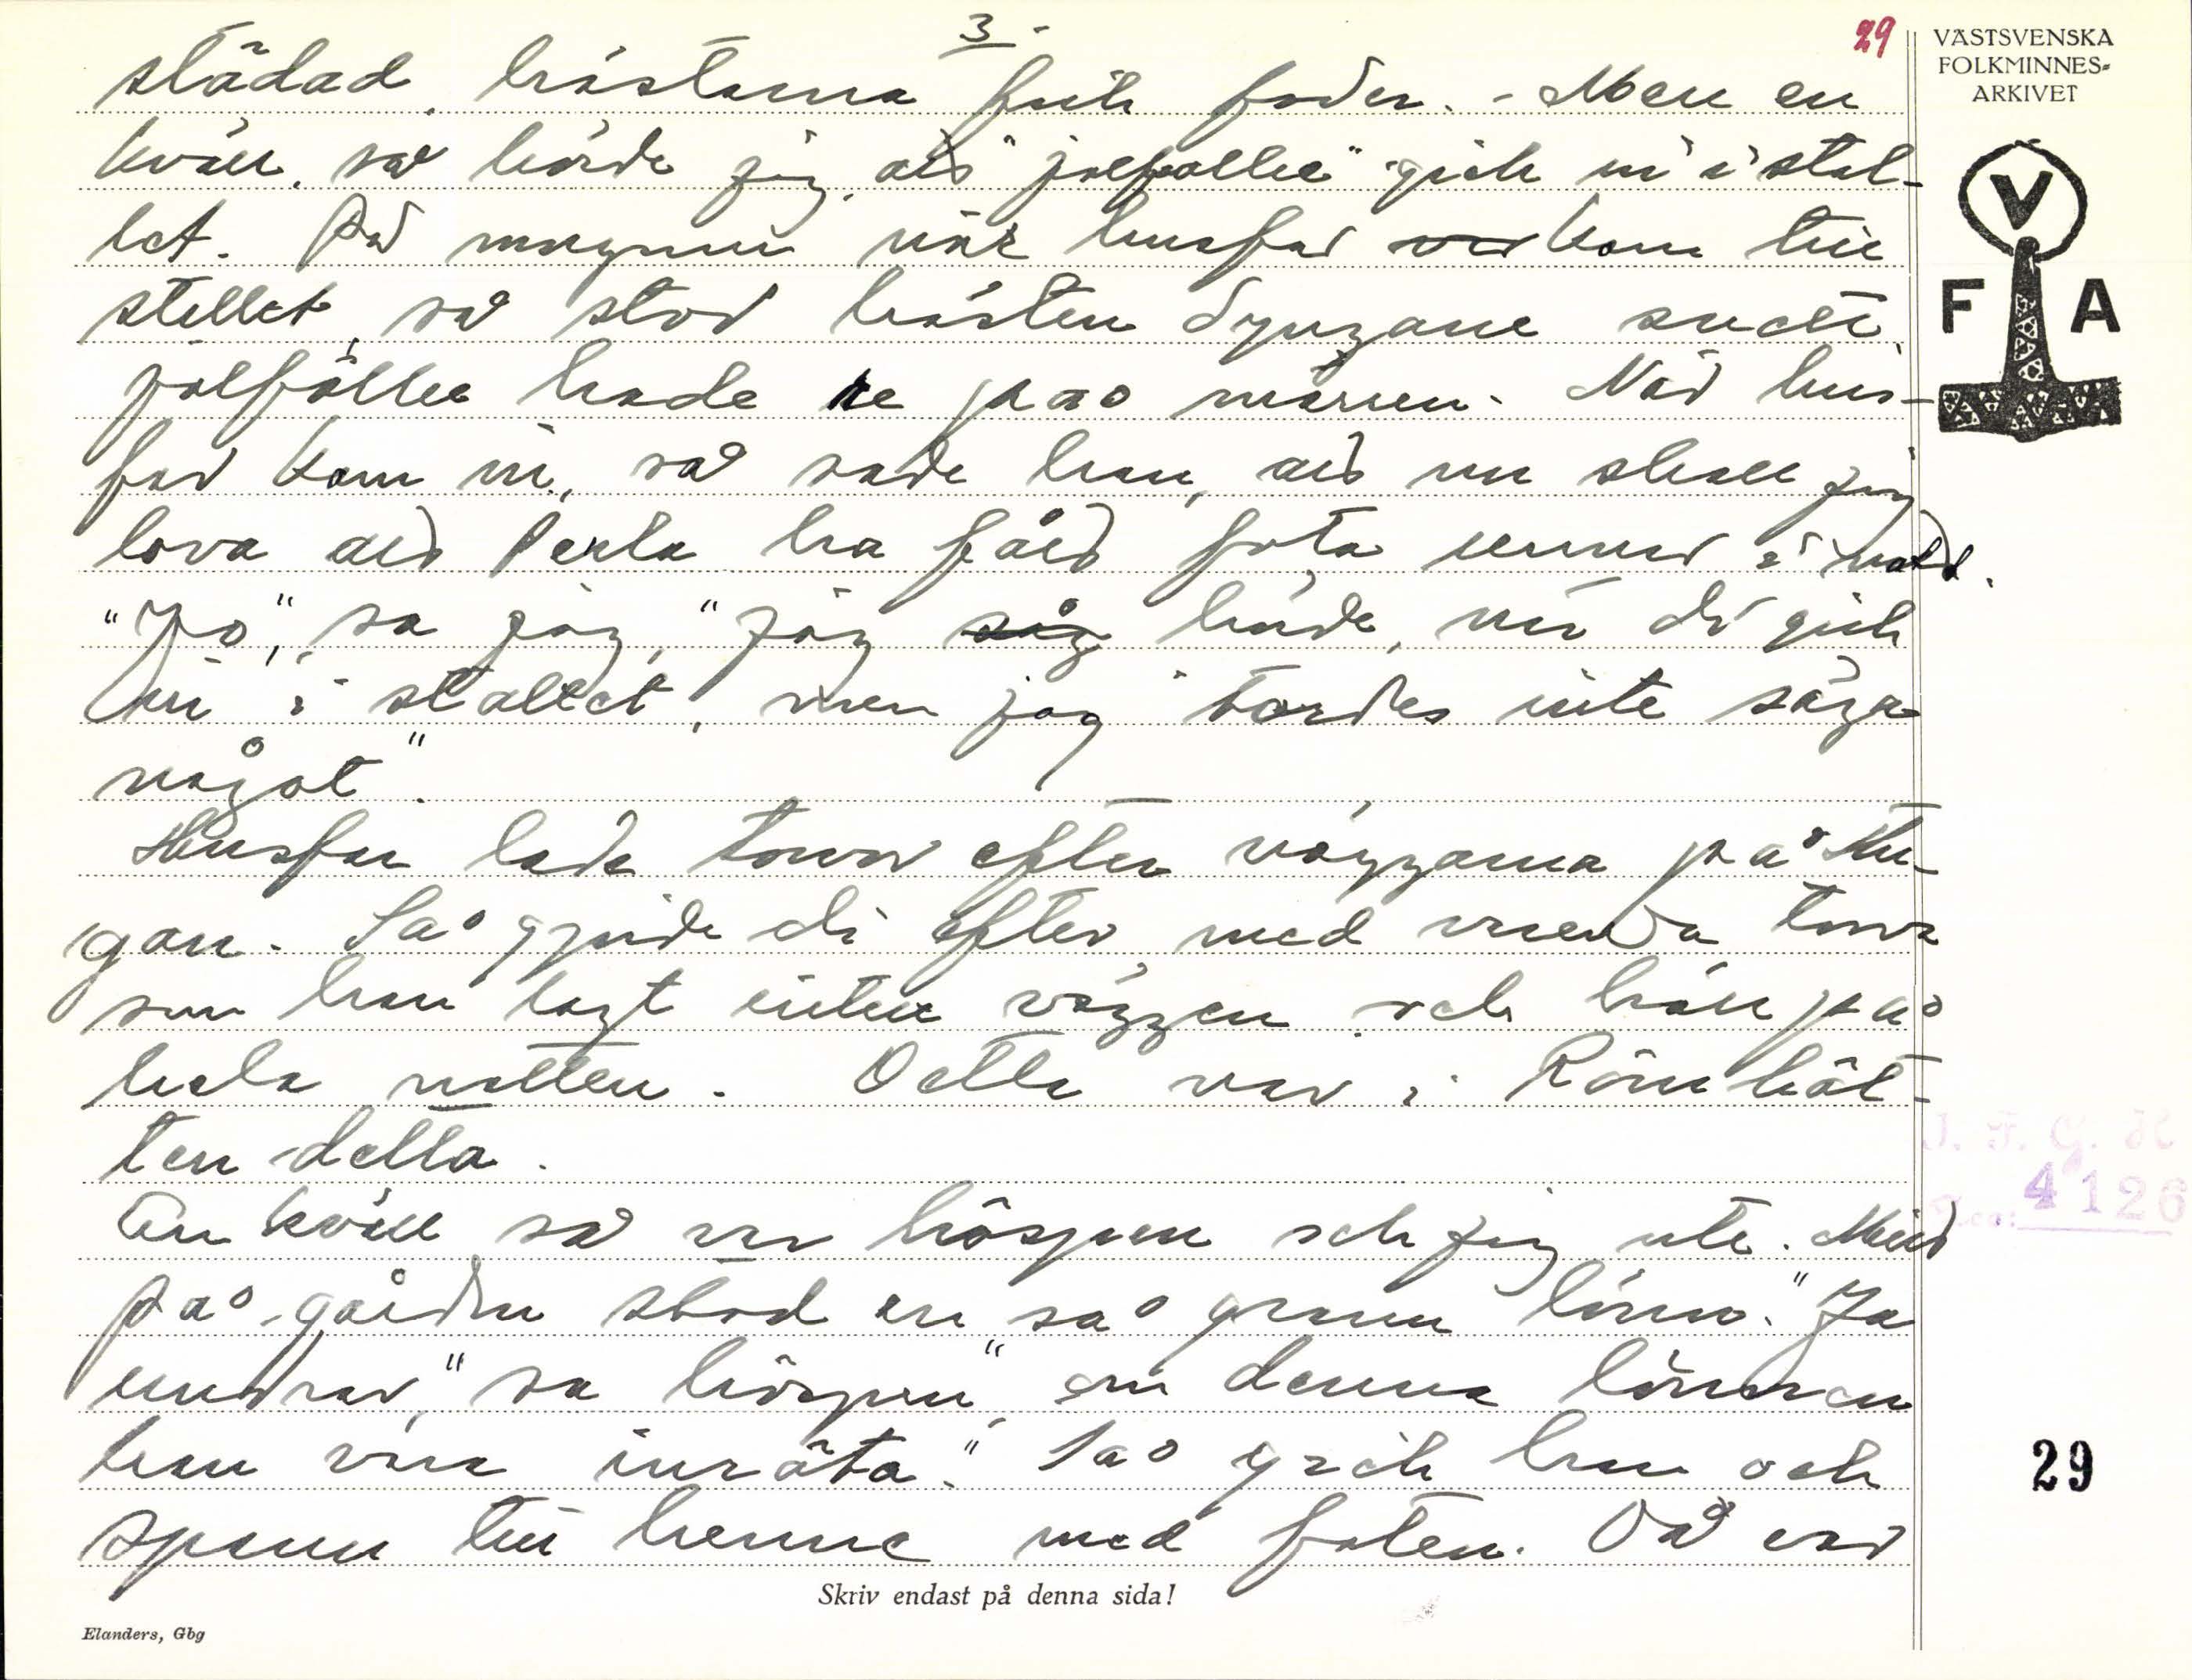 3.
29
VÄSTSVENSKA
FOLKMINNES-
ARKIVET
V
F A
städad, hästarna fick foder. - Men en
kväll, så hörde jag, att "jolfollk" gick in i stal-
let. På morgonen när husfar kom till
stallet, så stod hästen dyngane svett,
jolfollk hade re pao mären. När hus-
far kom in, så sade han, att nu skall jag
lova att Perla ha fått fota unner i natt.
"Jo", sa jag, "jag såg hörde, när di gick
in i stallet, men jag tordes inte säga
något".
Husfar lade torv efter väggarna på stu-
gan. Sao gjorde di efter med murda torv
som han lagt intill väggen och höll pao
hela natten. Detta var i Römhåt-
ten detta.
En kväll så var höspen och jag ute. Mitt
pao gården stod en sao grann lönn. "Ja
undrar", sa höspen, "om denna lönnen
kan vara inröta." Sao gick han och
spann till henne med foten. Då var
Skriv endast på denna sida!
Elanders, Gbg
4126
29